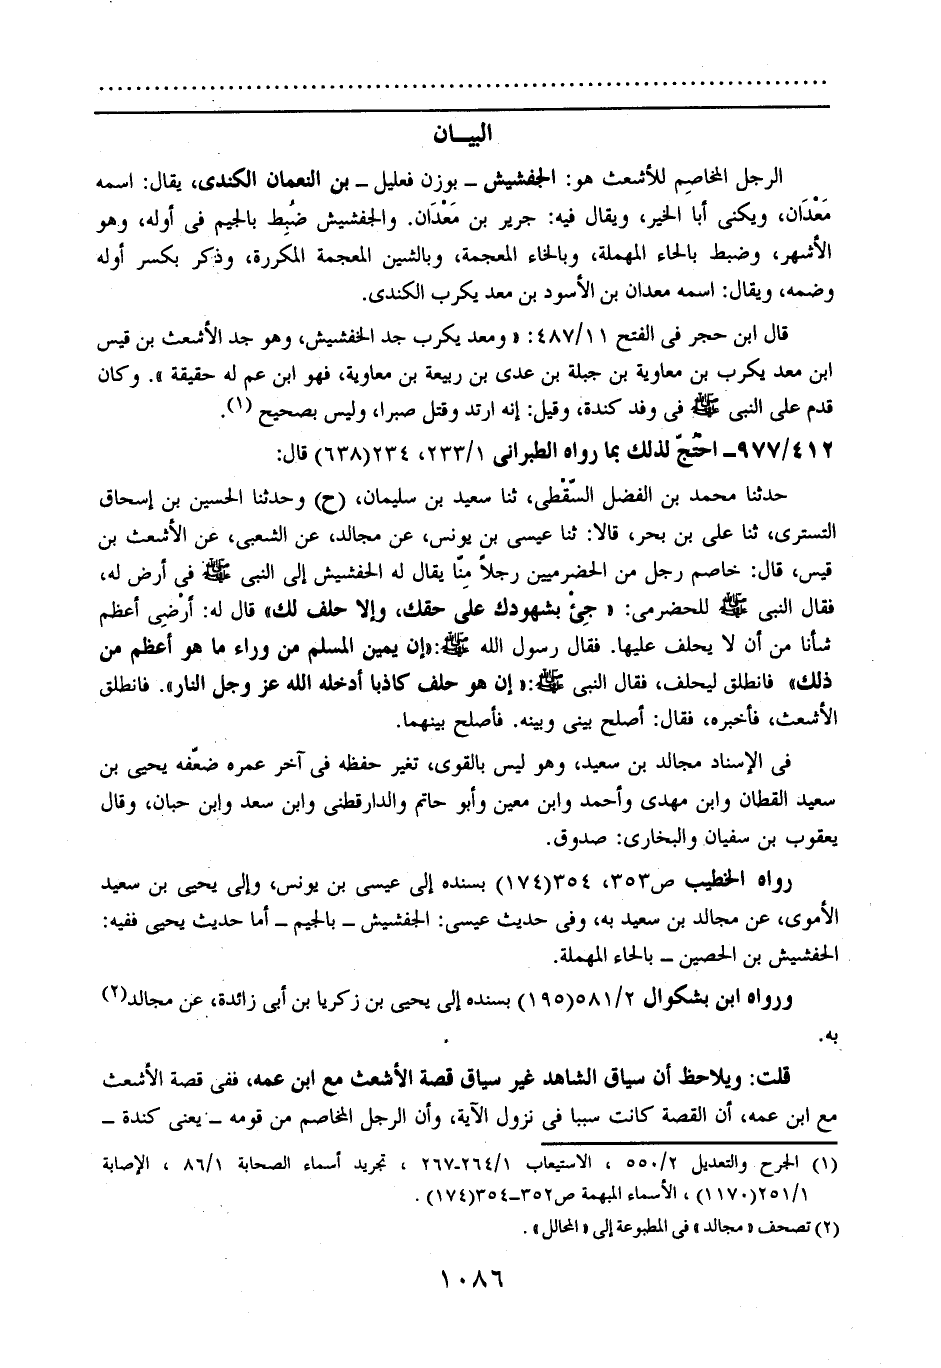 البيـــان
الرجل المخاصم للأشعث هو: الجفشيش ـ بوزن فعليل ـ بن النعمان الكندى، يقال: اسمه
مَعْدَان، ويكنى أبا الخير، ويقال فيه: جرير بن مَعْدَان. والجفشيش ضُبِط بالجيم فى أوله، وهو
الأشهر، وضبط بالحاء المهملة، وبالخاء المعجمة، وبالشين المعجمة المكررة، وذكر بكسر أوله
وضمه، ويقال: اسمه معدان بن الأسود بن معد يكرب الكندى.
قال ابن حجر فى الفتح ٤٨٧/١١: « ومعد يكرب جد الخفشيش، وهو جد الأشعث بن قيس
ابن معد يكرب بن معاوية بن جبلة بن عدى بن ربيعة بن معاوية، فهو ابن عم له حقيقة ». وكان
قدم على النبى ﷺ فى وفد كندة، وقيل: إنه ارتد وقتل صبرا، وليس بصحيح (١).
٩٧٧/٤١٢ـ احتُجّ لذلك بما رواه الطبرانى ٢٣٣/١، ٢٣٤(٦٣٨) قال:
حدثنا محمد بن الفضل السَّقَطى، ثنا سعيد بن سليمان، (ح) وحدثنا الحسين بن إسحاق
التسترى، ثنا على بن بحر، قالا: ثنا عيسى بن يونس، عن مجالد، عن الشعبى، عن الأشعث بن
قيس، قال: خاصم رجل من الحضرميين رجلاً مِنّا يقال له الحفشيش إلى النبى ﷺ فى أرض له،
فقال النبى ﷺ للحضرمى: « جِئْ بشهودك على حقك، وإلا حلف لك» قال له: أرْضِى أعظم
شأنا من أن لا يحلف عليها. فقال رسول الله ﷺ:«إن يمين المسلم من وراء ما هو أعظم من
ذلك» فانطلق ليحلف، فقال النبى ﷺ:« إن هو حلف كاذبا أدخله الله عز وجل النار». فانطلق
الأشعث، فأخبره، فقال: أصلح بينى وبينه. فأصلح بينهما.
فى الإسناد مجالد بن سعيد، وهو ليس بالقوى، تغير حفظه فى آخر عمره ضعّفه يحيى بن
سعيد القطان وابن مهدى وأحمد وابن معين وأبو حاتم والدارقطنى وابن سعد وابن حبان، وقال
يعقوب بن سفيان والبخارى: صدوق.
رواه الخطيب ص٣٥٣، ٣٥٤(١٧٤) بسنده إلى عيسى بن يونس، وإلى يحيى بن سعيد
الأموى، عن مجالد بن سعيد به، وفى حديث عيسى: الجفشيش ـ بالجيم ـ أما حديث يحيى ففيه:
الحفشيش بن الحصين ـ بالحاء المهملة.
ورواه ابن بشكوال ٥٨١/٢(١٩٥) بسنده إلى يحيى بن زكريا بن أبى زائدة، عن مجالد(٢)
به.
قلت: ويلاحظ أن سياق الشاهد غير سياق قصة الأشعث مع ابن عمه، ففى قصة الأشعث
مع ابن عمه، أن القصة كانت سببا فى نزول الآية، وأن الرجل المخاصم من قومه ـ يعنى كندة ـ
(١) الجرح والتعديل ٥٥٠/٢ ، الاستيعاب ٢٦٤/١-٢٦٧ ، تجريد أسماء الصحابة ٨٦/١ ، الإصابة
٢٥١/١(١١٧٠) ، الأسماء المبهمة ص٣٥٢-٣٥٤(١٧٤) .
(٢) تصحف « مجالد» فى المطبوعة إلى « المحالل» .
١٠٨٦